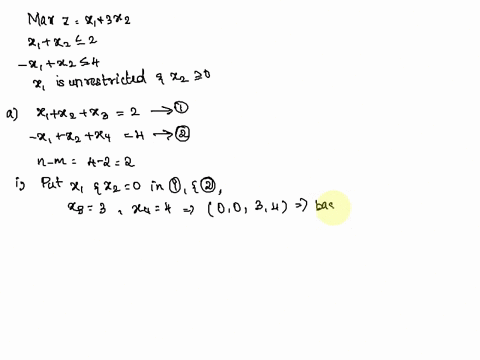 Max Z = x₁+3x₂
x₁+x₂ ≤ 2
-x₁+x₂ ≤ 4
x₁ is unrestricted & x₂ ≥0
a) x₁+x₂+x₃ = 2 → ①
-x₁+x₂+x₄ = 4 → ②
n-m = 4-2 = 2
i, Put x₁ & x₂=0 in ①, & ②,
x₃=3, x₄=4 ⇒ (0,0,3,4) ⇒ bas